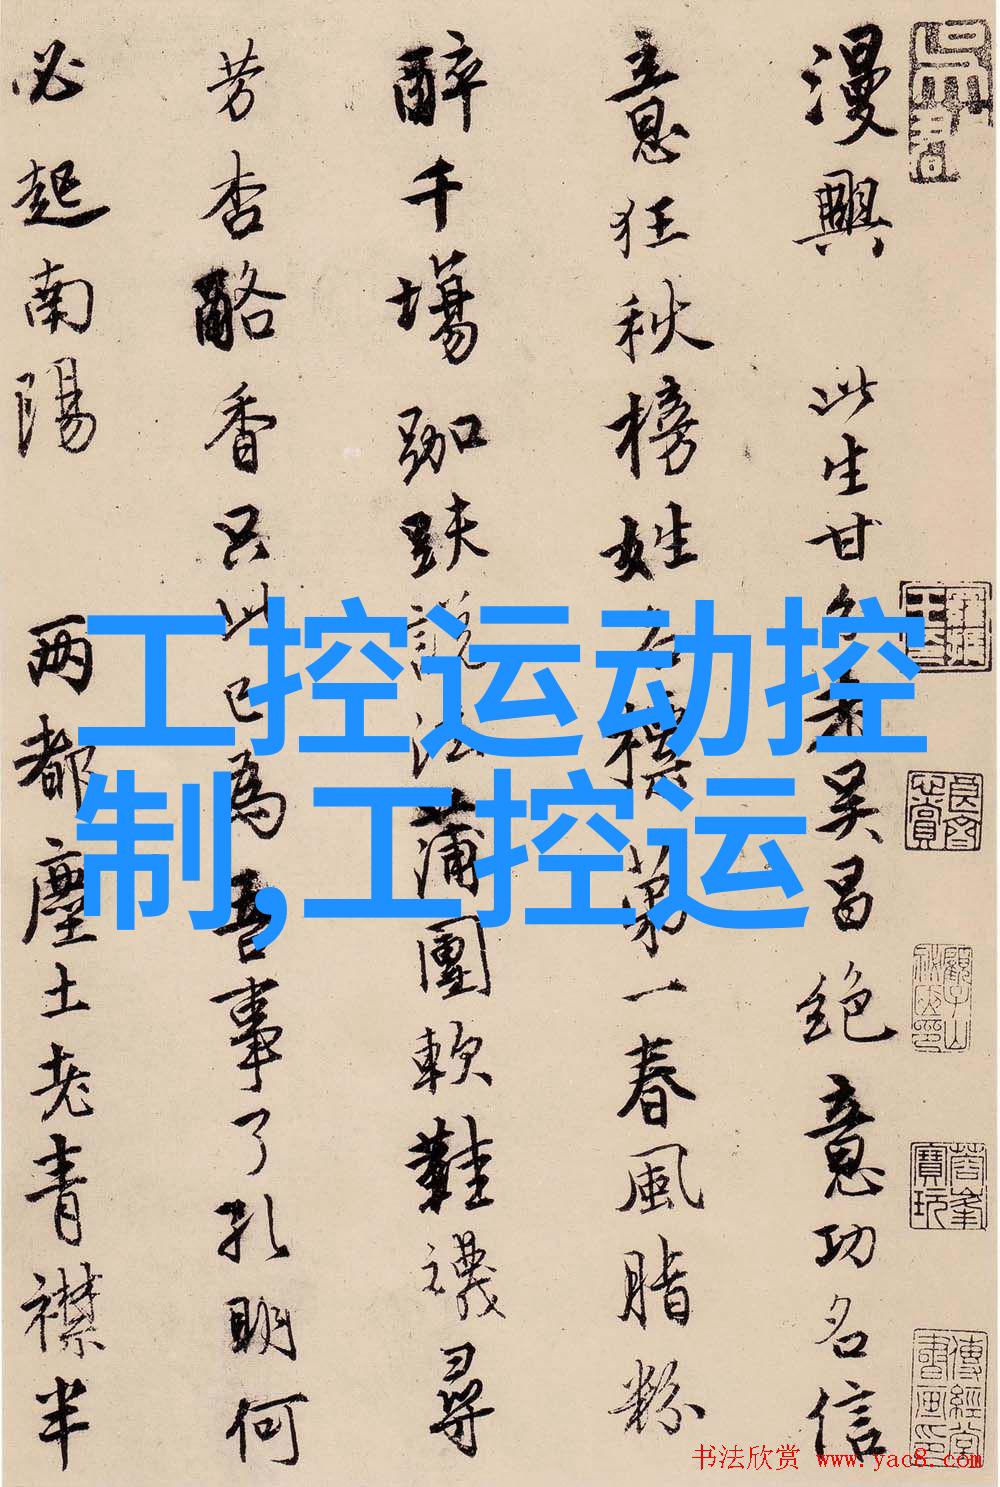 漫興 此生甘分老吴昌絶意功名信
意狂秋榜姓名標第一春風脂粉
醉千場跏趺說法蒲團軟鞋襪尋
芳杏酪香只此已為吾事了孔明何
必起南陽 兩都塵土老青襟半
工控运动控
制,工控运
书法欣赏 www.yac8.com